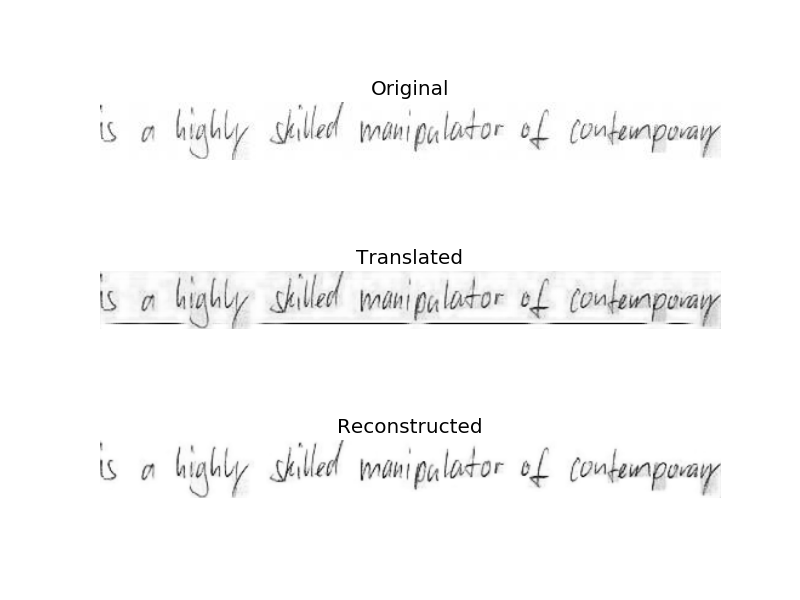 Original
is a highly skilled manipulator of contemporary
Translated
is a highly skilled manipulator of contemporary
Reconstructed
is a highly skilled manipulator of contemporary